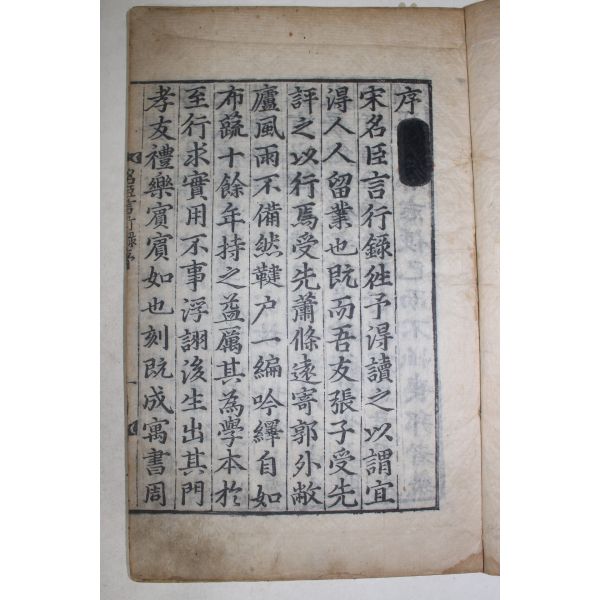 序
宋名臣言行錄徃予得讀之以謂宜
得人人留業也既而吾友張子受先
評之以行焉受先蕭條遠寄郭外敝
廬風雨不備然鍵户一編吟繹自如
布蔬十餘年持之益厲其為學本於
至行求實用不事浮詡後生出其門
孝友禮樂賓賓如也刻既成寓書周
名臣言行錄序
一